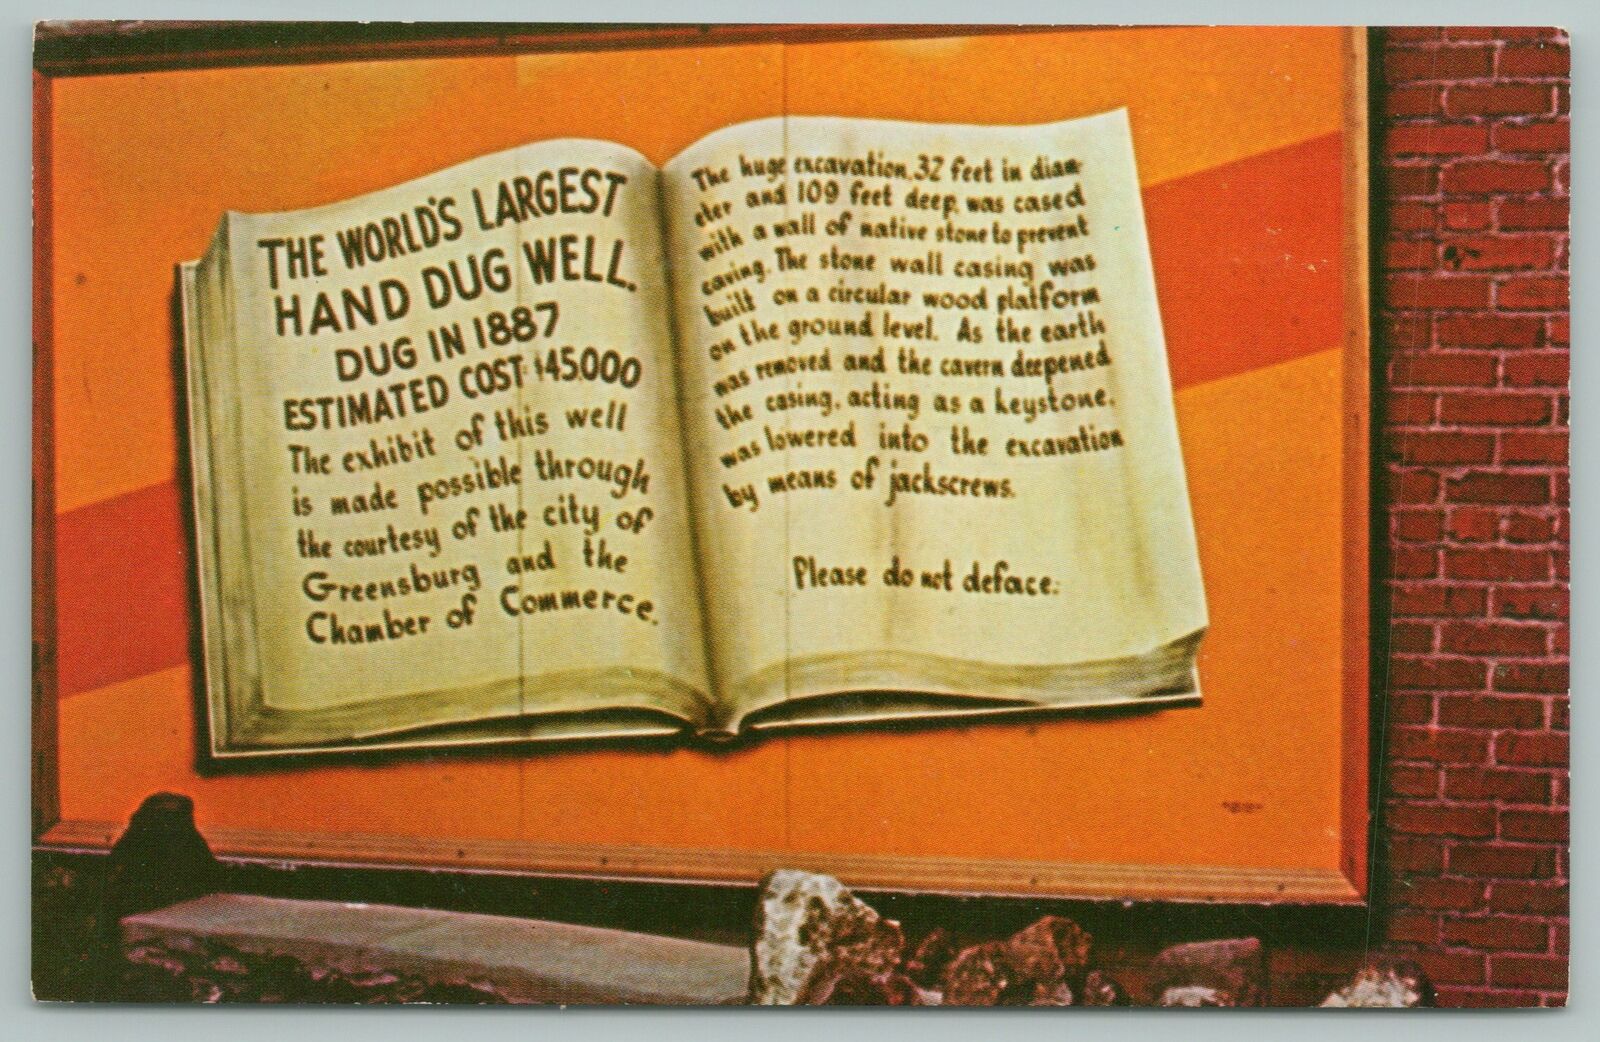 THE WORLD'S LARGEST
HAND DUG WELL.
DUG IN 1887
ESTIMATED COST $45,000
The exhibit of this well
is made possible through
the courtesy of the city of
Greensburg and the
Chamber of Commerce.
The huge excavation, 32 feet in diam-
eter and 109 feet deep, was cased
with a wall of native stone to prevent
caving. The stone wall casing was
built on a circular wood platform
on the ground level. As the earth
was removed and the cavern deepened
the casing, acting as a keystone,
was lowered into the excavation
by means of jackscrews.
Please do not deface.